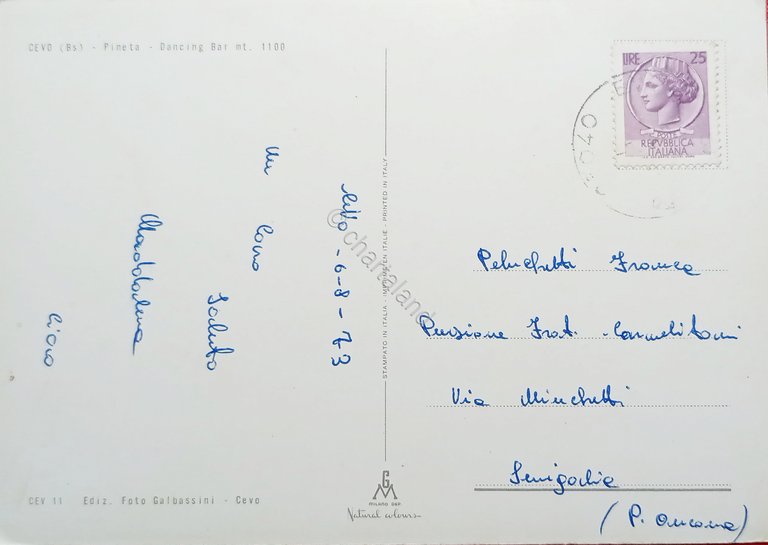 CEVO (Bs) - Pineta - Dancing Bar mt. 1100
Cevo - 6-8-73
Un caro
saluto
Maddalena
Ciao
LIRE 25
POSTE
REPVBBLICA
ITALIANA
25040
Peluchetti Franca
Pensione Frat. Carmelitani
Via Minchetti
Senigallia
(P. Ancona)
STAMPATO IN ITALIA - IMPRIMÉ EN ITALIE - PRINTED IN ITALY
© chartaland
CEV 11 Ediz. Foto Galbassini - Cevo
G
M
MILANO DEP.
Natural colours